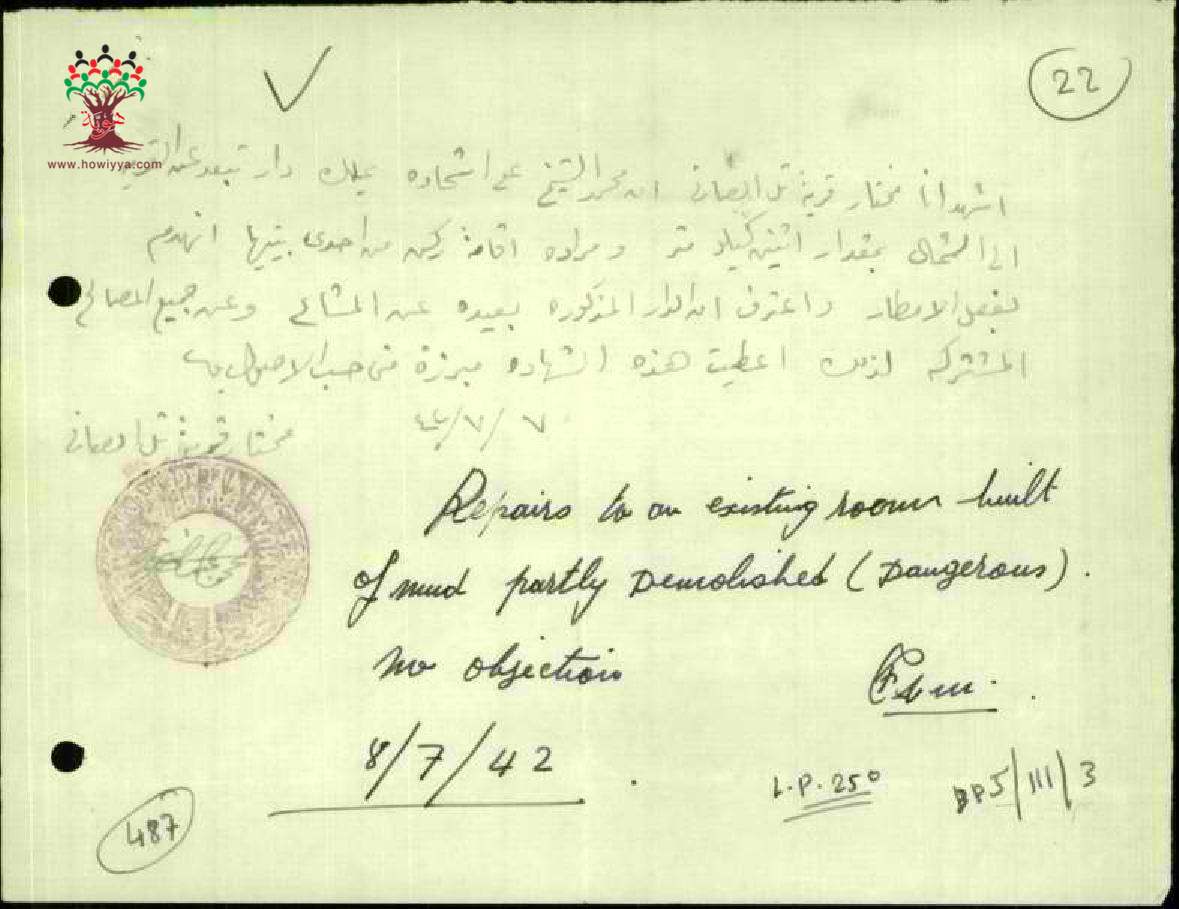 22
هوية
www.howiyya.com
اشهد انا مختار قرية تل الصافي ان محمد الشيخ علي اشحاده يملك دار تبعد عن القرية
الى الشمال بمقدار اثنين كيلو متر ومراده اقامة ركن من احدى بيتيها انهدم
بفعل الامطار واعترف ان الدار المذكوره بعيده عن المشاع وعن جميع المصالح
المشتركه لذلك اعطيت هذه الشهاده مبرزة مني حسب الاصول
٧/٧/٤٢
مختار قرية تل الصافي
Repairs to an existing room built
of mud partly Demolished (Dangerous).
No objection
8/7/42
L.P. 250
DP5/111/3
487